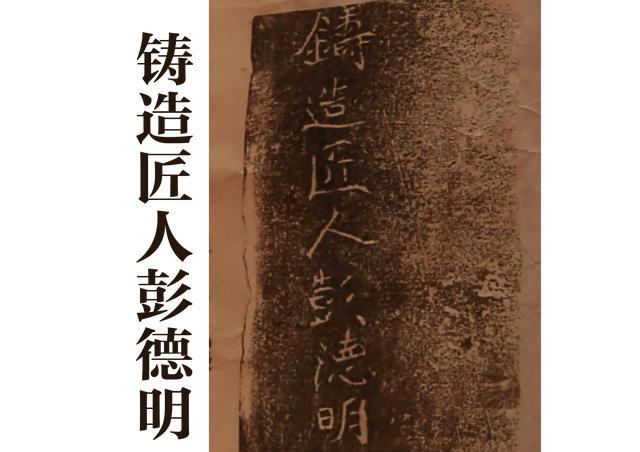 铸造匠人彭德明
鑄造匠人彭德明